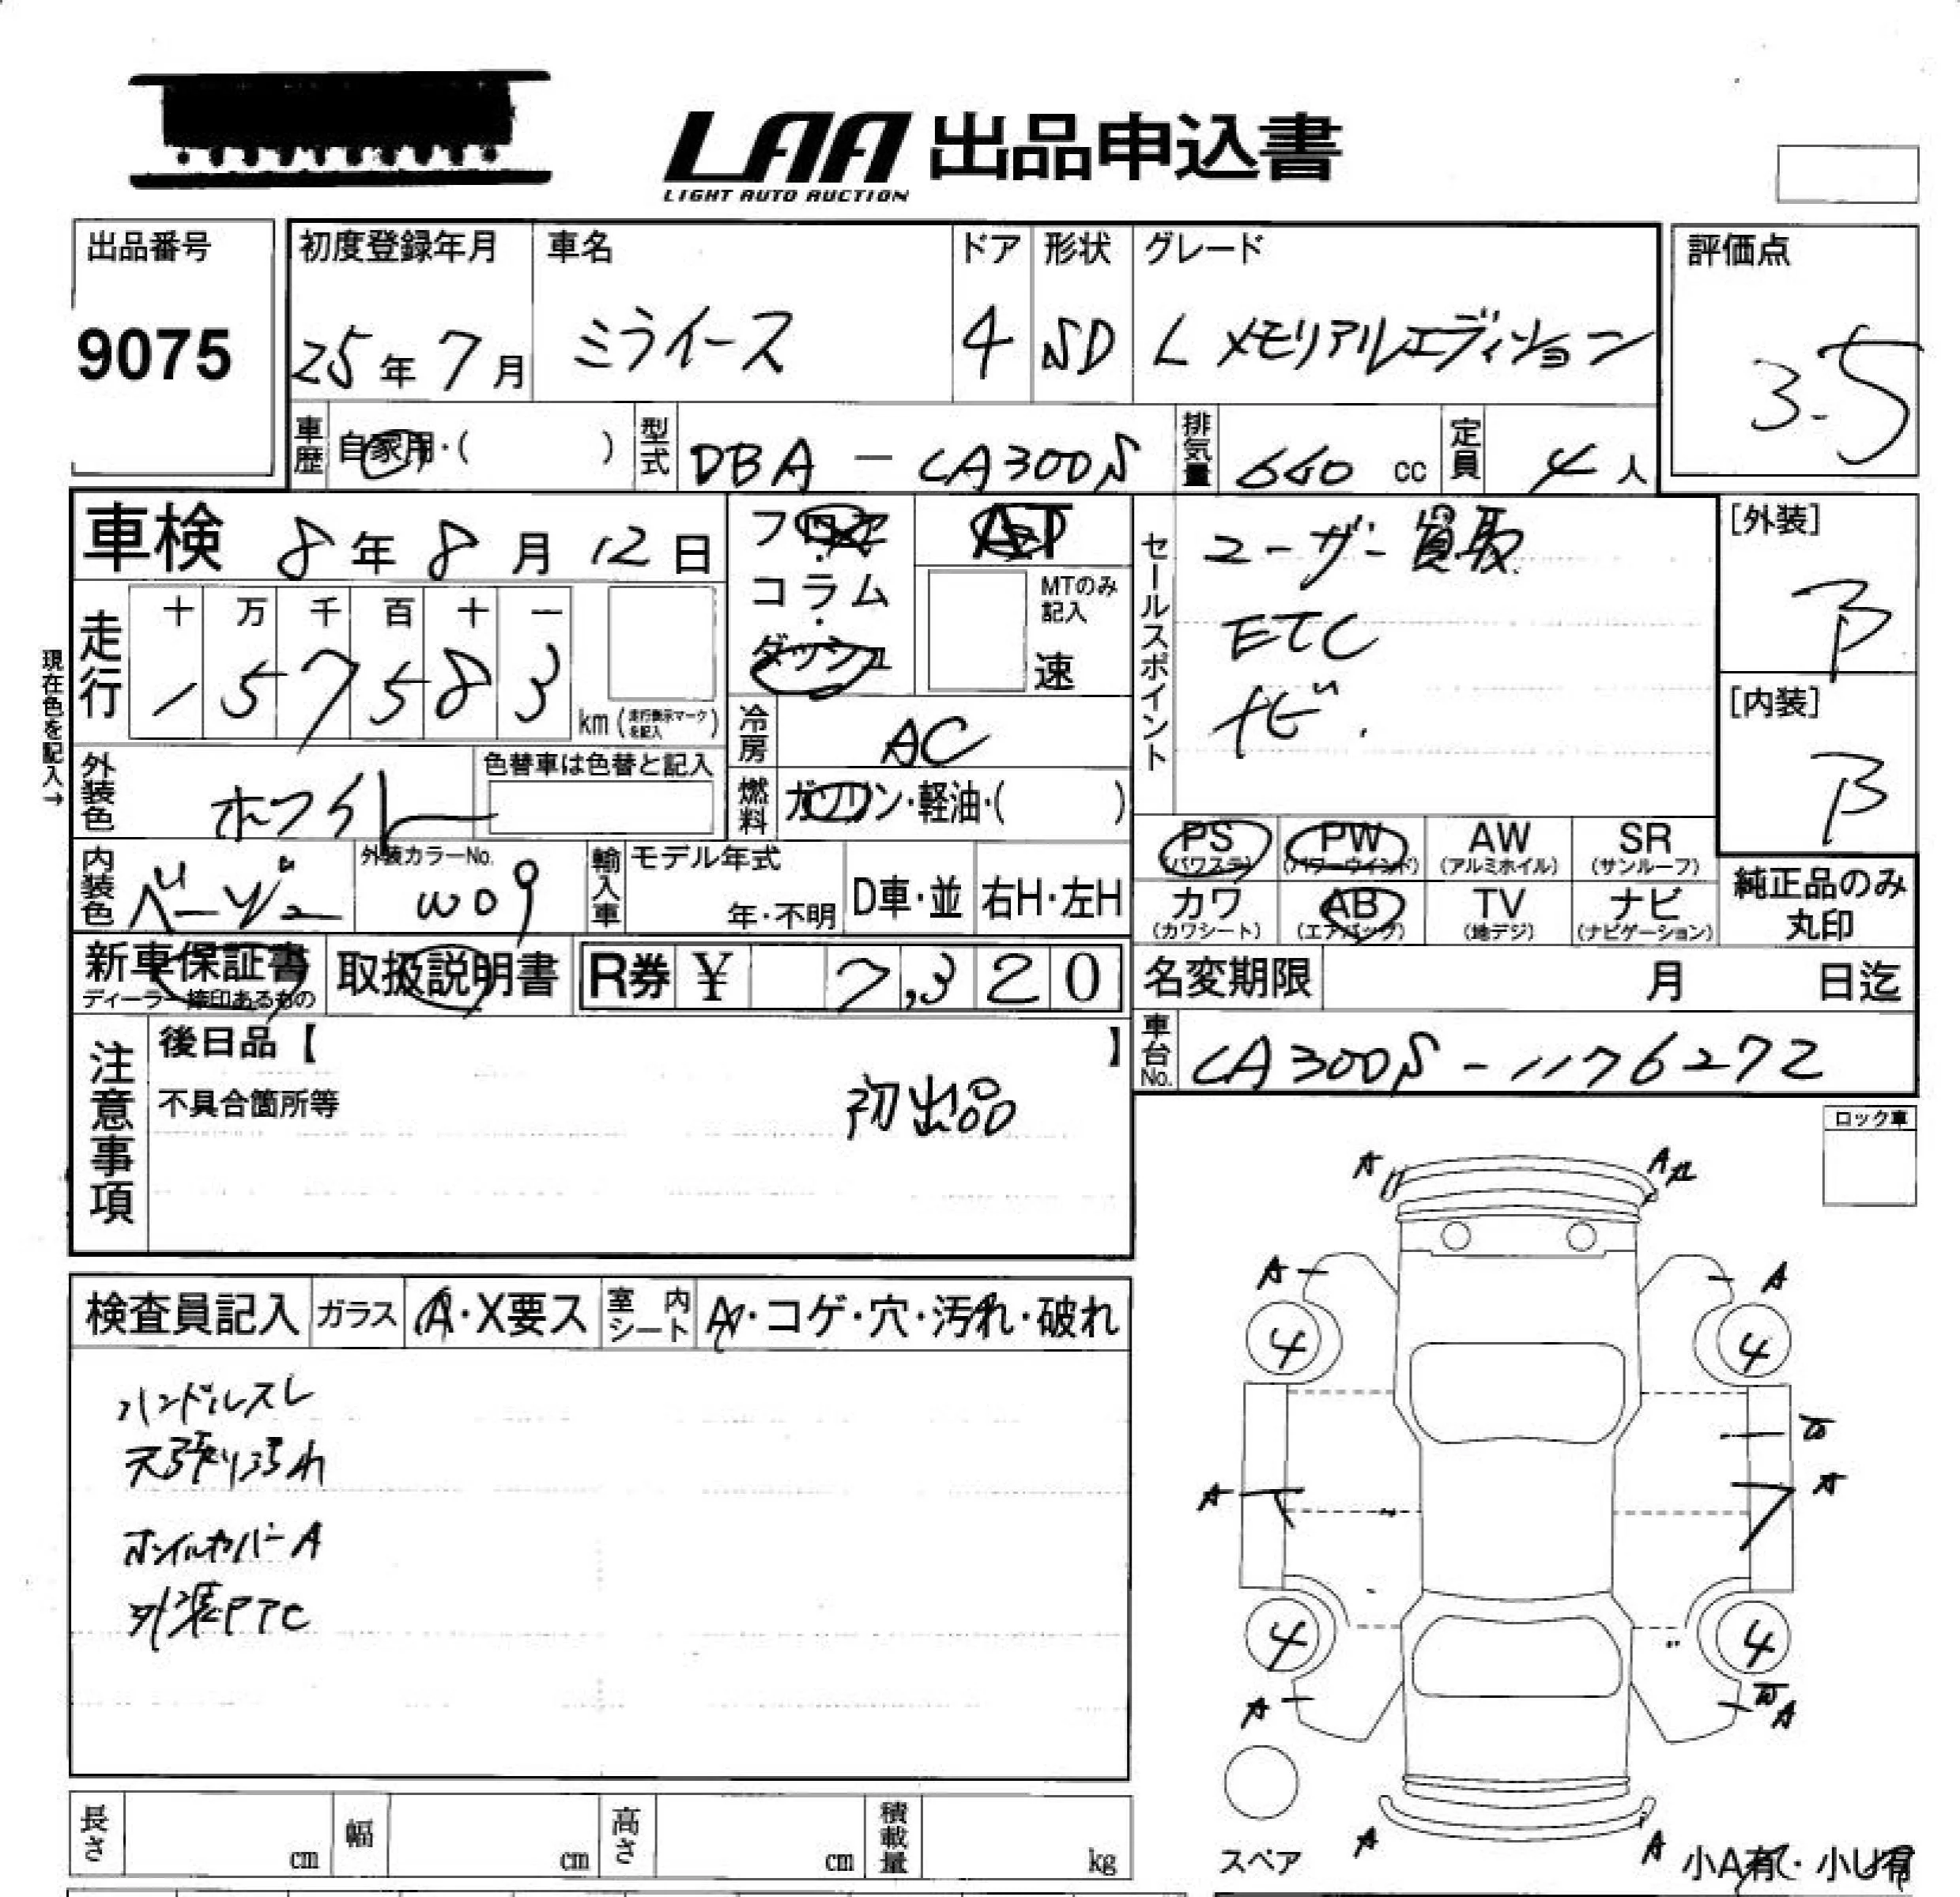 LAA 出品申込書
LIGHT AUTO AUCTION
出品番号
9075
初度登録年月
25年7月
車名
ミライース
ドア
4
形状
SD
グレード
L メモリアルエディション
評価点
3.5
車歴
自家用・( )
型式
DBA - CA300S
排気量
660 cc
定員
4人
車検 8年8月12日
フロア・コラム・ダッシュ
AT
MTのみ記入
速
セールスポイント
ユーザー買取
ETC
ナビ.
[外装]
B
[内装]
B
現在色を記入→
走行
十 万 千 百 十 一
1 5 7 5 8 3
km (走行表示マークを記入)
冷房
AC
外装色
ホワイト
色替車は色替と記入
燃料
ガソリン・軽油・( )
内装色
ベージュ
外装カラーNo.
W09
輸入車
モデル年式
年・不明
D車・並
右H・左H
PS (パワステ)
PW (パワーウインド)
AW (アルミホイル)
SR (サンルーフ)
カワ (カワシート)
AB (エアバック)
TV (地デジ)
ナビ (ナビゲーション)
純正品のみ丸印
新車保証書
ディーラー捺印あるもの
取扱説明書
R券 ¥ 7,320
名変期限 月 日迄
注意事項
後日品【 】
不具合箇所等
初出品
車台No.
CA300S-1176272
ロック車
検査員記入
ガラス
A・X要ス
室内シート
A・コゲ・穴・汚れ・破れ
ハンドルスレ
天張り汚れ
ホイルカバーA
外装PTC
A A
A A
4 4
A A
4 4
A A
スペア
A A
小A有・小U有
長さ cm
幅 cm
高さ cm
積載量 kg